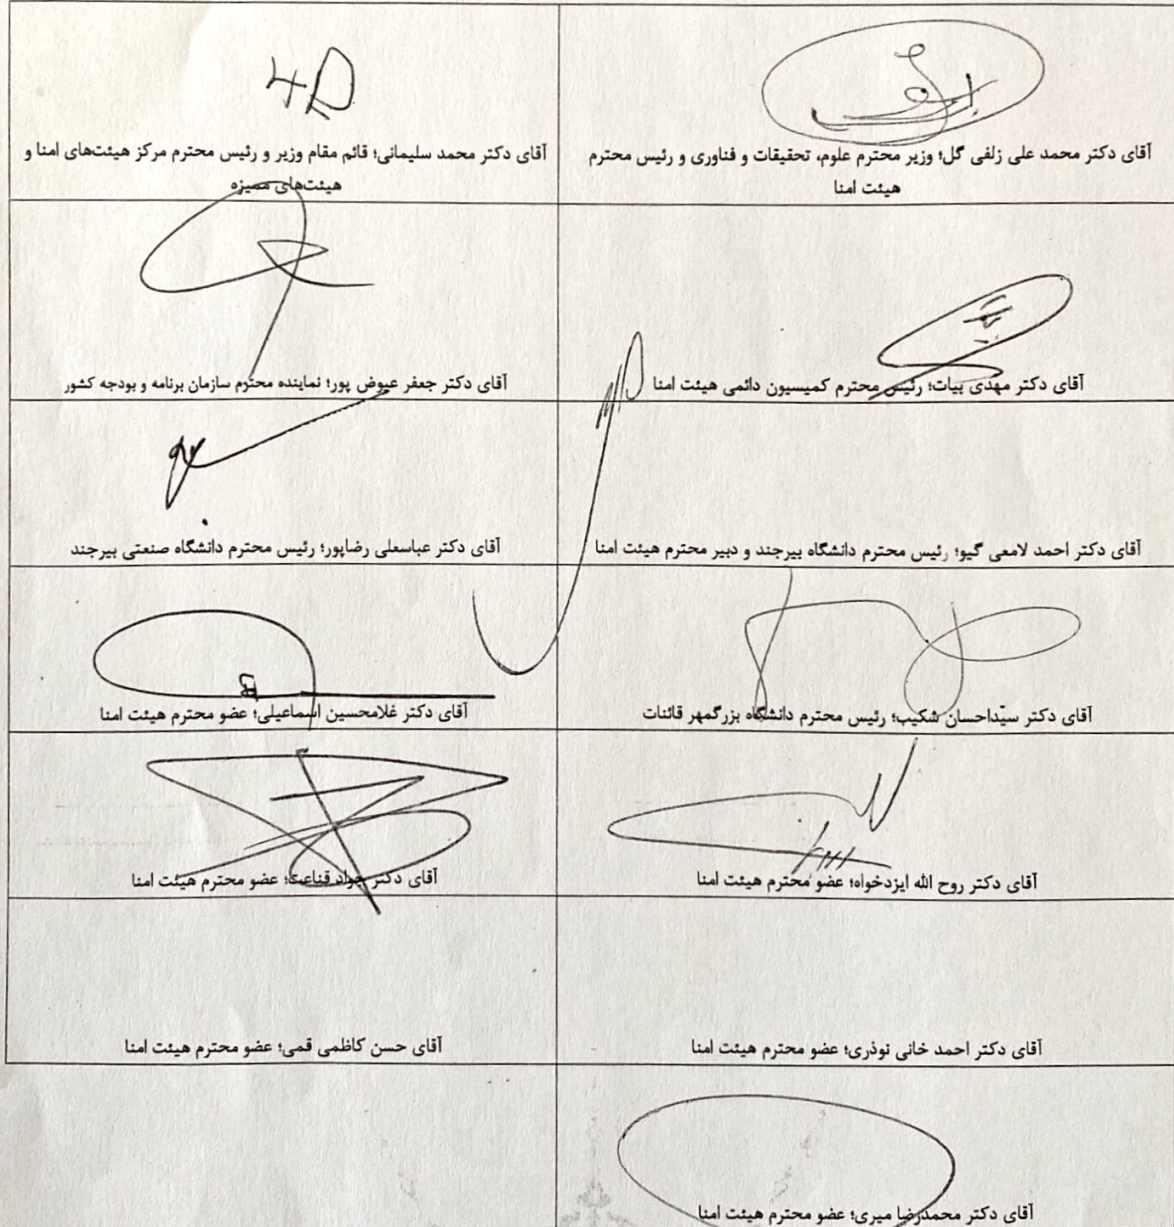 آقای دکتر محمد علی زلفی گل؛ وزیر محترم علوم، تحقیقات و فناوری و رئیس محترم
هیئت امنا
آقای دکتر محمد سلیمانی؛ قائم مقام وزیر و رئیس محترم مرکز هیئت‌های امنا و
هیئت‌های ممیزه
آقای دکتر مهدی بیات؛ رئیس محترم کمیسیون دائمی هیئت امنا
آقای دکتر جعفر عیوض پور؛ نماینده محترم سازمان برنامه و بودجه کشور
آقای دکتر احمد لامعی گیو؛ رئیس محترم دانشگاه بیرجند و دبیر محترم هیئت امنا
آقای دکتر عباسعلی رضاپور؛ رئیس محترم دانشگاه صنعتی بیرجند
آقای دکتر سیّداحسان شکیب؛ رئیس محترم دانشگاه بزرگمهر قائنات
آقای دکتر غلامحسین اسماعیلی؛ عضو محترم هیئت امنا
آقای دکتر روح الله ایزدخواه؛ عضو محترم هیئت امنا
آقای دکتر جواد قناعت؛ عضو محترم هیئت امنا
آقای دکتر احمد خانی نوذری؛ عضو محترم هیئت امنا
آقای حسن کاظمی قمی؛ عضو محترم هیئت امنا
آقای دکتر محمدرضا میری؛ عضو محترم هیئت امنا